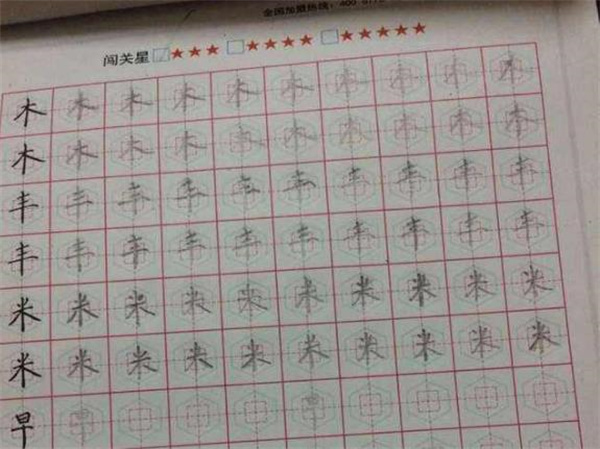 全国加盟热线：400
闯关星 ★★★ ★★★★ ★★★★★
木 木 木 木 木 木 木 木 木 木
木 木 木 木 木 木 木 木 木 木
丰 丰 丰 丰 丰 丰 丰 丰 丰 丰
丰 丰 丰 丰 丰 丰 丰 丰 丰 丰
米 米 米 米 米 米 米 米 米 米
米 米 米 米 米 米 米 米 米 米
早 早 早